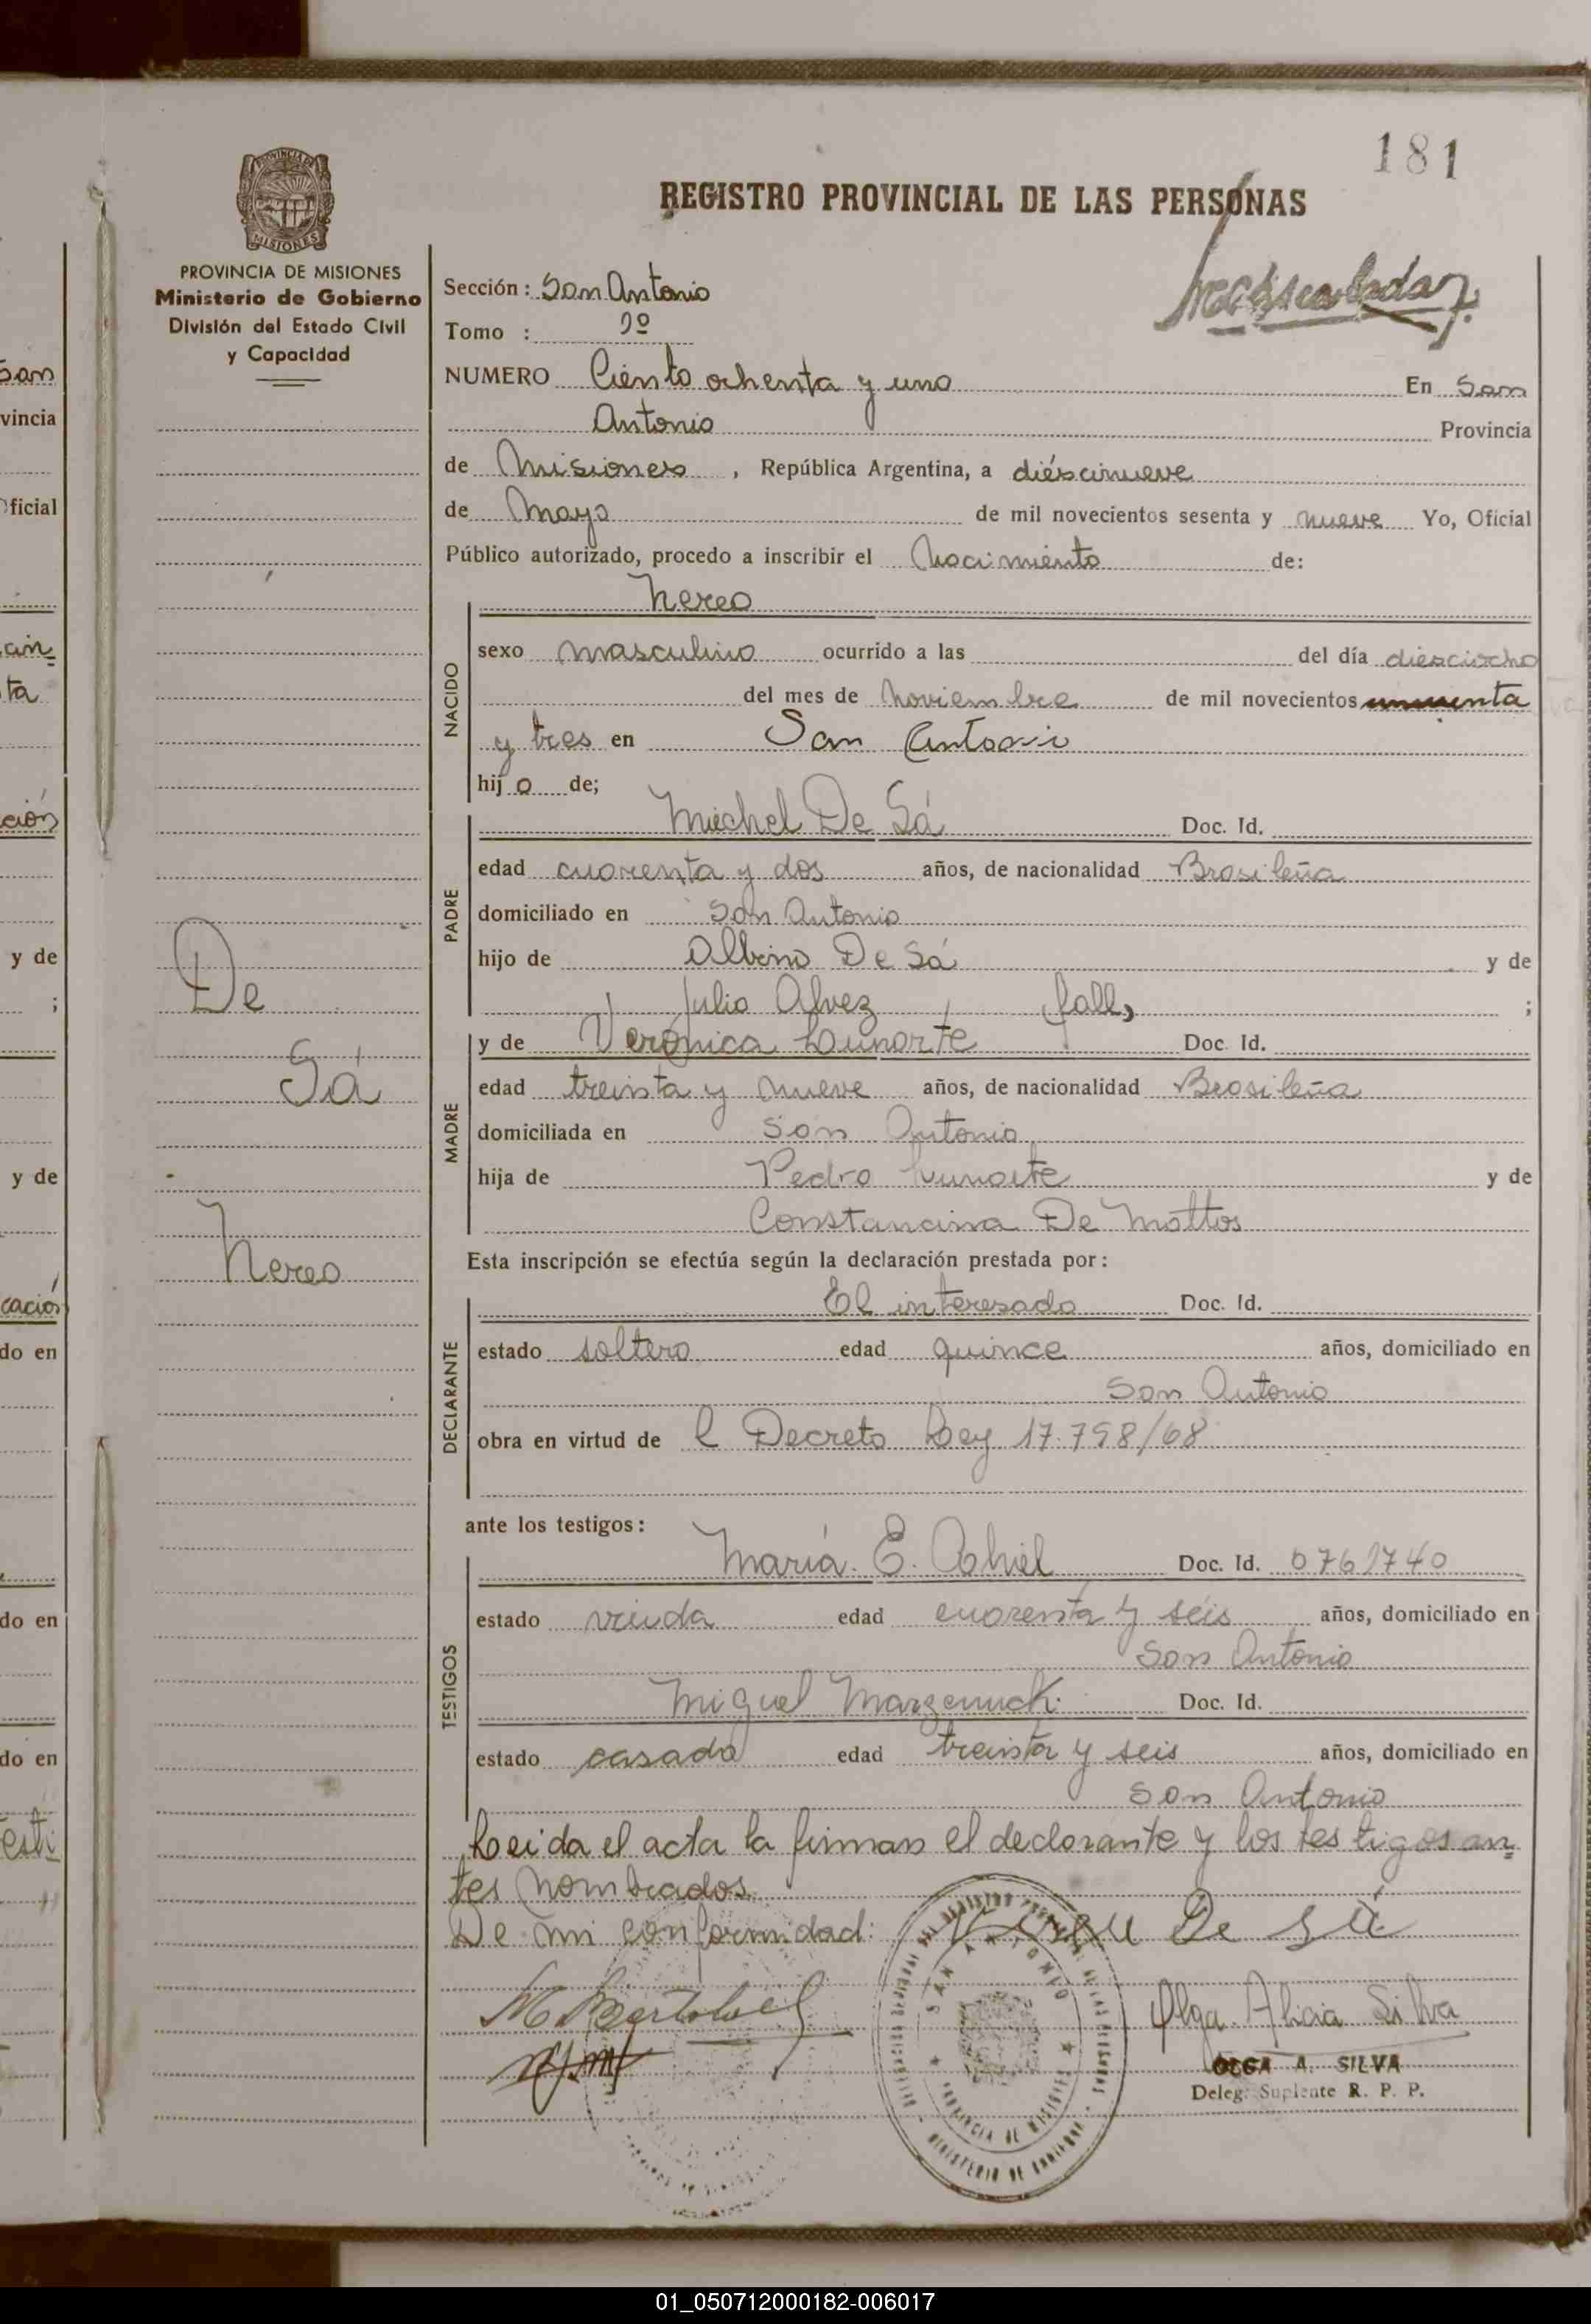 181
REGISTRO PROVINCIAL DE LAS PERSONAS
PROVINCIA DE MISIONES
Ministerio de Gobierno
División del Estado Civil
y Capacidad
Sección: San Antonio
Tomo : 1º
NUMERO Ciento ochenta y uno En San
Antonio Provincia
de Misiones, República Argentina, a diéscinueve
de Mayo de mil novecientos sesenta y nueve Yo, Oficial
Público autorizado, procedo a inscribir el Nacimiento de:
Nereo
NACIDO
sexo masculino ocurrido a las del día diesciocho
del mes de Noviembre de mil novecientos
y tres en San Antonio
hijo de;
PADRE
Michel De Sá Doc. Id.
edad cuarenta y dos años, de nacionalidad Brasileña
domiciliado en San Antonio
hijo de Albino De Sá y de
Julia Alvez fall, ;
MADRE
y de Veronica Doc. Id.
edad treinta y nueve años, de nacionalidad Brasileña
domiciliada en San Antonio
hija de Pedro y de
Constancina De Mattos
De
Sá
Nereo
Esta inscripción se efectúa según la declaración prestada por:
DECLARANTE
El interesado Doc. Id.
estado soltero edad quince años, domiciliado en
San Antonio
obra en virtud de l Decreto Ley 17.798/68
ante los testigos:
TESTIGOS
María E. Doc. Id. 0761740
estado viuda edad cuarenta y seis años, domiciliado en
San Antonio
Miguel Doc. Id.
estado casado edad treinta y seis años, domiciliado en
San Antonio
Leida el acta la firman el declarante y los testigos an=
tes nombrados.
De mi conformidad: De Sá
Olga Alicia Silva
OLGA A. SILVA
Deleg. Suplente R. P. P.
01_050712000182-006017